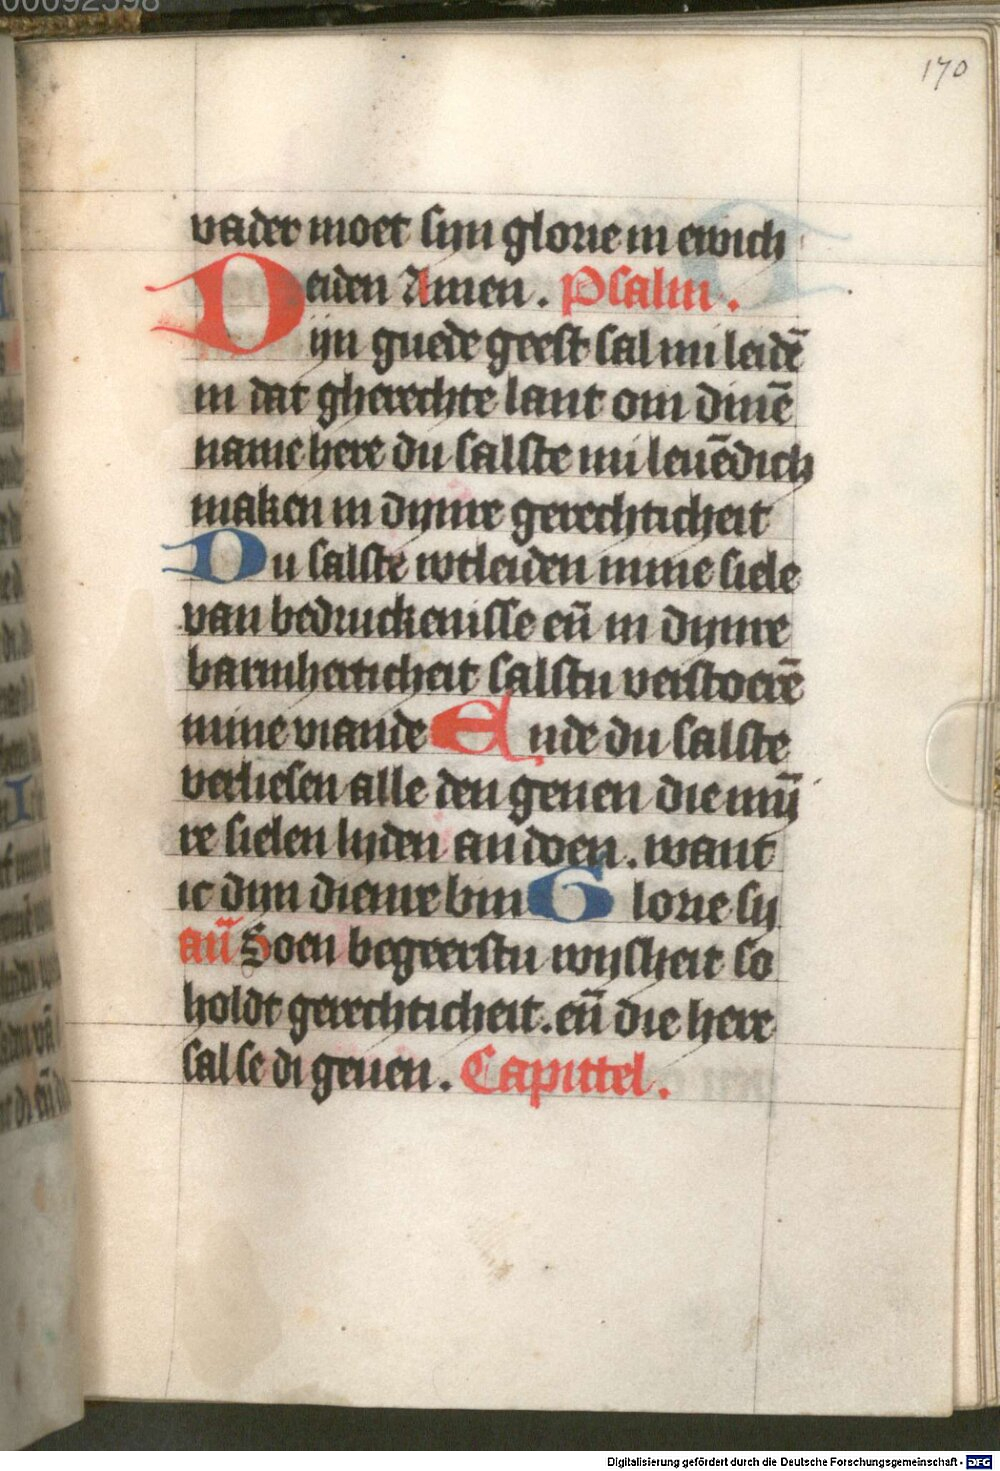 00092598
170
vader moet sijn glorie in ewich
eiden Amen. Psalm.
Dijn guede geest sal mi leidē
in dat gherechte lant om dinē
name here du salste mi leuēdich
maken in dijnre gerechticheit
Du salste wtleiden mine siele
van bedruckenisse en̄ in dijnre
barmherticheit salstu verstoerē
mine viande Ende du salste
verliesen alle den genen die mij̄
re sielen lyden an doen. want
ic dijn dienre bin Glorie sij
an̄ Soen begeerstu wijsheit so
holdt gerechticheit. en̄ die here
sal se di geuen. Capittel.
Digitalisierung gefördert durch die Deutsche Forschungsgemeinschaft - DFG